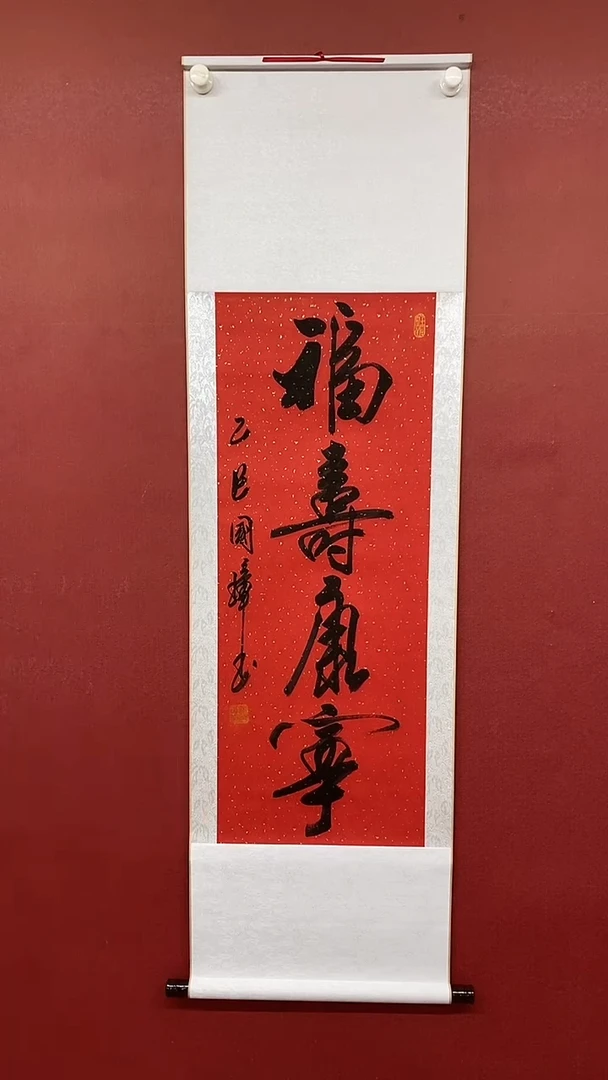 福壽康寧
乙巳國瑋書